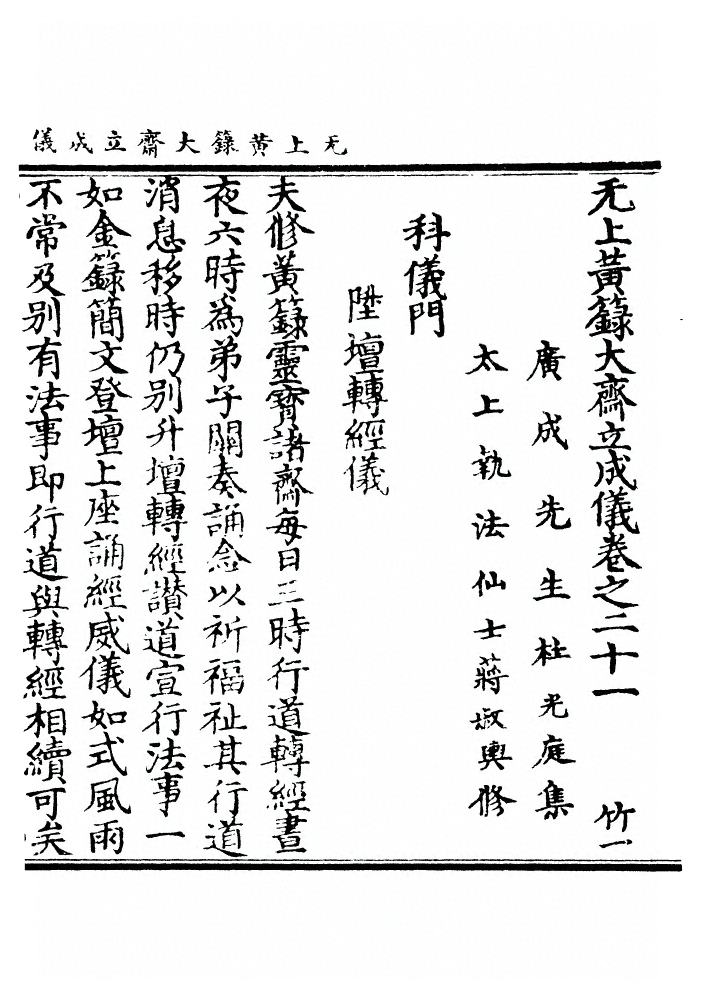 无上黃籙大齋立成儀
无上黃籙大齋立成儀卷之二十一　竹一
廣成先生杜光庭集
太上執法仙士蔣叔輿修
科儀門
陞壇轉經儀
夫修黃籙靈寶諸齋每日三時行道轉經晝
夜六時為弟子關奏誦念以祈福祉其行道
消息移時仍別升壇轉經讃道宣行法事一
如金籙簡文登壇上座誦經威儀如式風雨
不常及別有法事即行道與轉經相續可矣